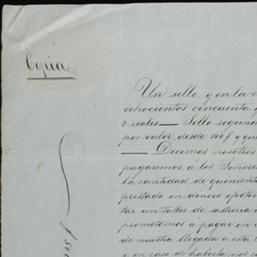 Copia
Un sello y en la
ochocientos cincuenta
2. reales — Sello segundo
por valor desde
— Decimos nosotros
pagaremos, a los Señores
la cantidad de quinientos
prestado en dinero efectivo
tar un taller de sastreria
prometemos a pagar en
de nuestra llegada a esta
y en caso de haberla